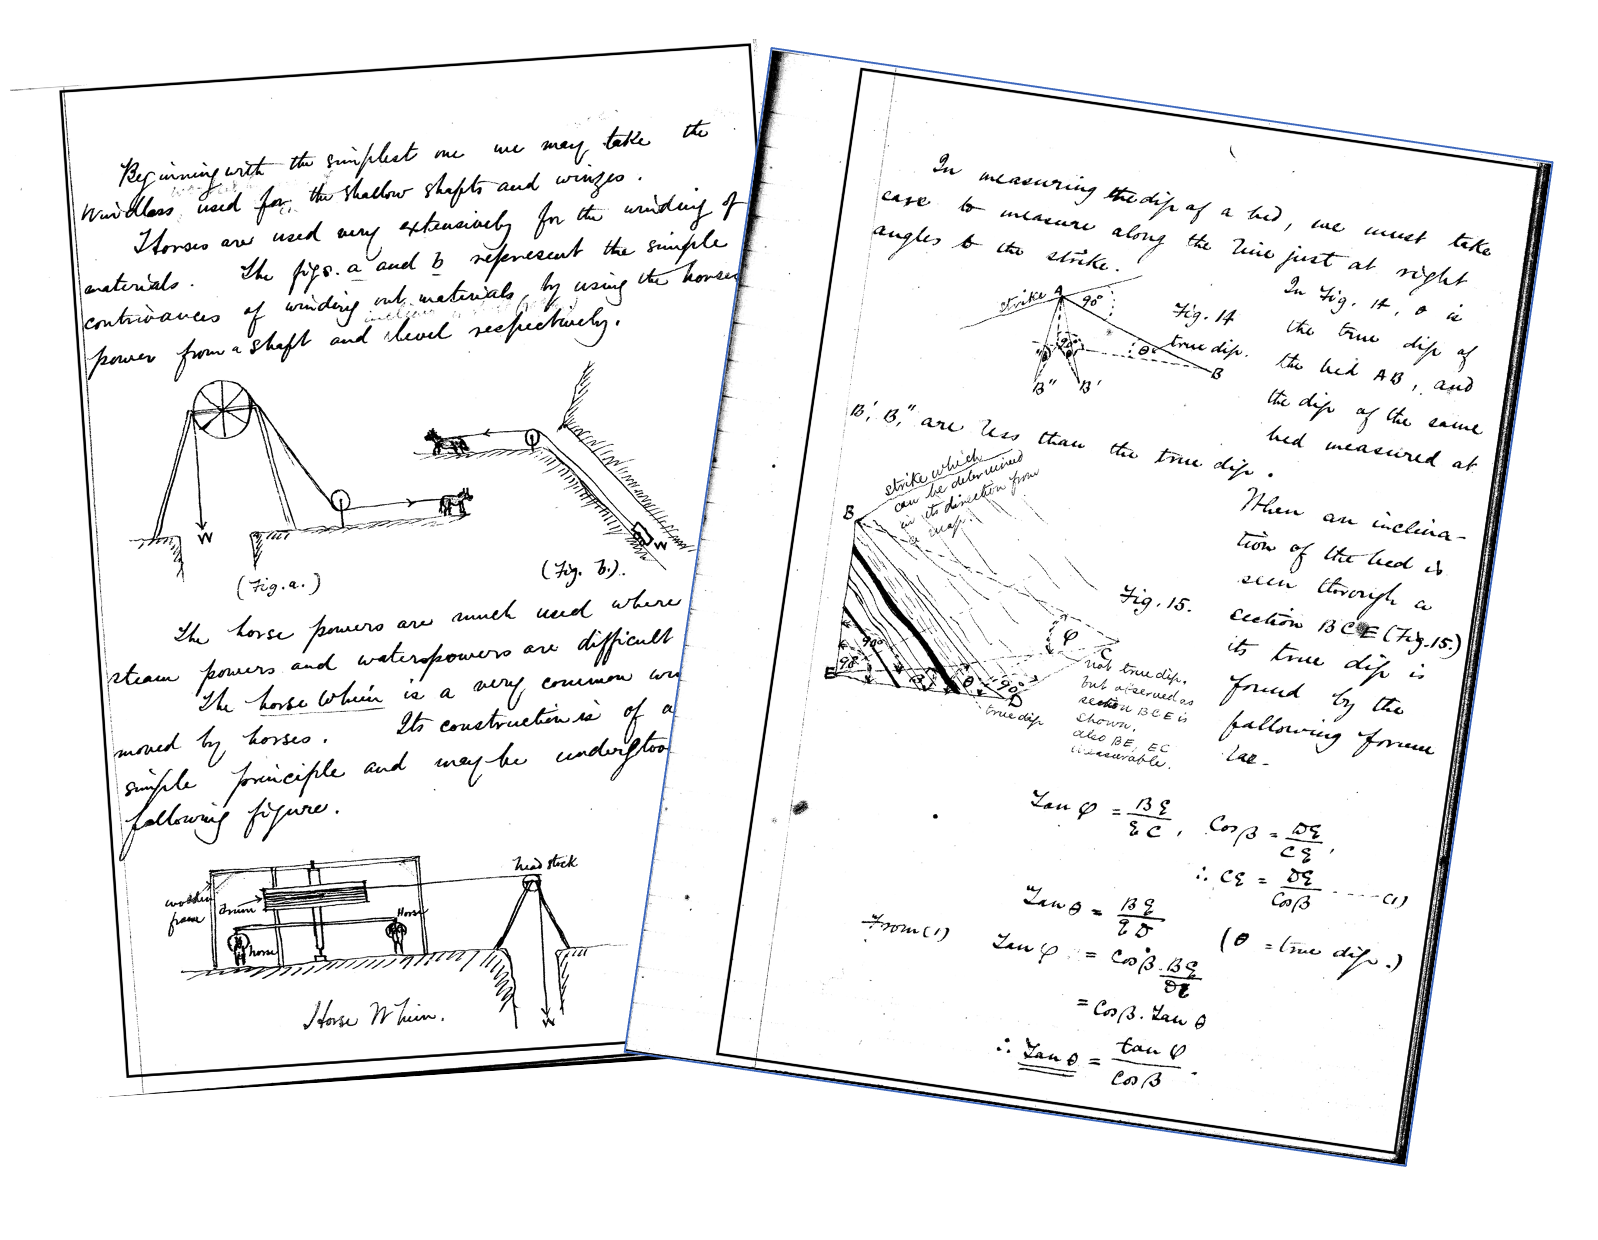 Beginning with the simplest one we may take the
windlass used for the shallow shafts and winzes.
Horses are used very extensively for the winding of
materials. The figs. a and b represent the simple
contrivances of winding out materials, by using the horses
power from a shaft and level respectively.
W
W
(Fig. a.)
(Fig. b.).
The horse powers are much used where
steam powers and waterpowers are difficult
The horse Whim is a very common
moved by horses. Its construction is of a
simple principle and may be understoo
following figure.
head stock
wooden
frame
Drum
Horse
horse
W
Horse Whim.
In measuring the dip of a bed, we must take
care to measure along the line just at right
angles to the strike.
strike A 90°
Fig. 14
true dip.
θ
B
B" B'
In Fig. 14, θ is
the true dip of
the bed AB, and
the dip of the same
bed measured at
B', B", are less than the true dip.
strike which
can be determined
in its direction from
a map.
B
When an inclina-
tion of the bed is
seen through a
section BCE (Fig. 15.)
its true dip is
found by the
following formu
lae.
Fig. 15.
φ
C
90°
90°
E
β
θ
90°
D
true dip
not true dip,
but observed as
section BCE is
shown.
also BE, EC
measurable.
Tan φ = BE/EC, Cos β = DE/CE,
∴ CE = DE/Cos β ----- (1)
Tan θ = BE/ED (θ = true dip.)
From (1) Tan φ = Cos β. BE/DE
= Cos β. Tan θ
∴ Tan θ = tan φ/Cos β.